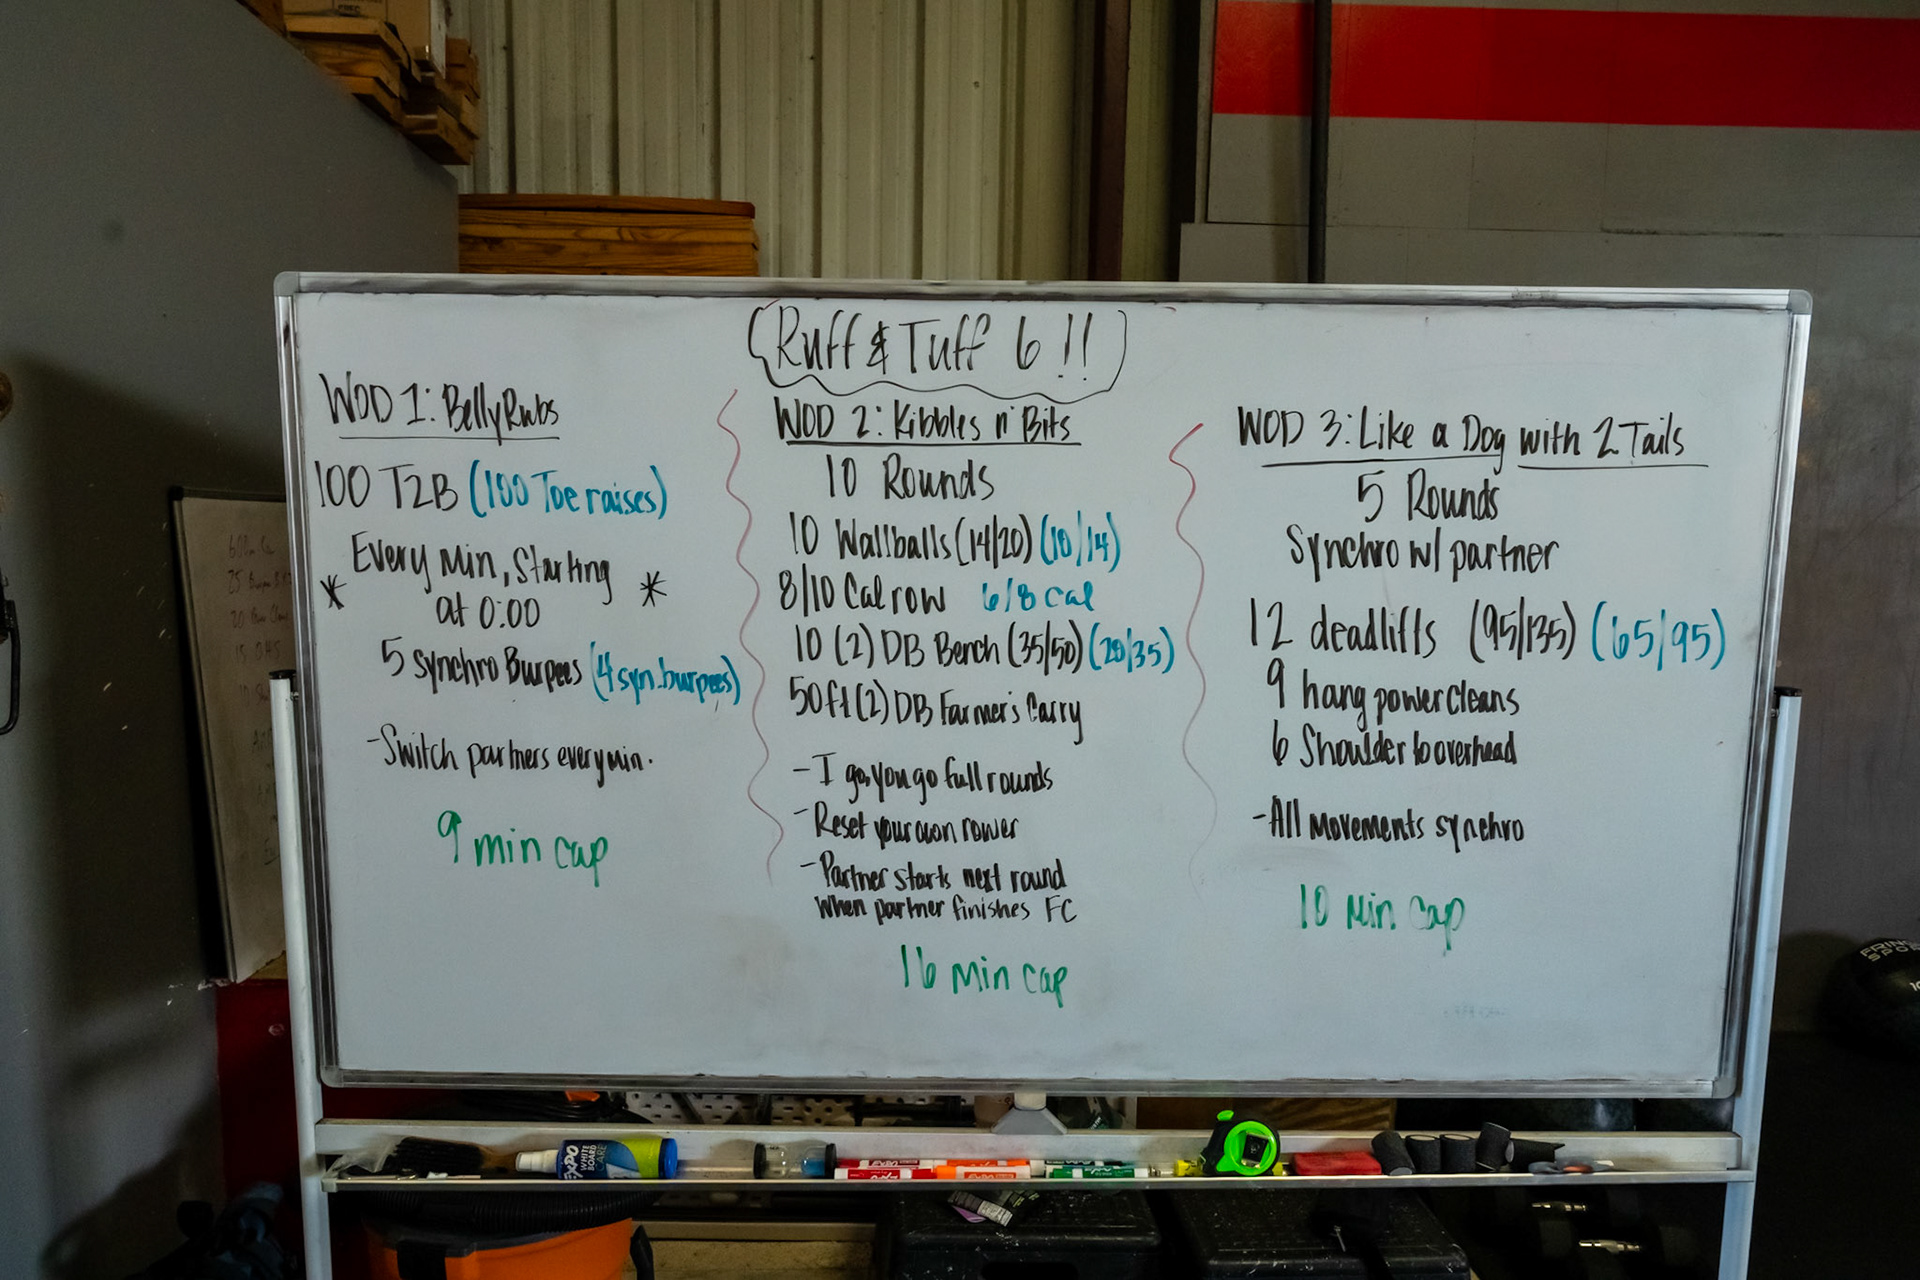 Ruff & Tuff 6!!
WOD 1: Belly Rubs
100 T2B (100 Toe raises)
* Every Min, Starting *
at 0:00
5 Synchro Burpees (4 syn. burpees)
- Switch partners every min.
9 min cap
WOD 2: Kibbles n' Bits
10 Rounds
10 Wallballs (14/20) (10/14)
8/10 Cal row 6/8 cal
10 (2) DB Bench (35/50) (20/35)
50ft (2) DB Farmer's Carry
- I go, you go full rounds
- Reset your own rower
- Partner starts next round
when partner finishes FC
16 Min cap
WOD 3: Like a Dog with 2 Tails
5 Rounds
Synchro w/ partner
12 deadlifts (95/135) (65/95)
9 hang power cleans
6 Shoulder to overhead
- All Movements synchro
10 Min. cap
EXPO
WHITE
BOARD
CARE